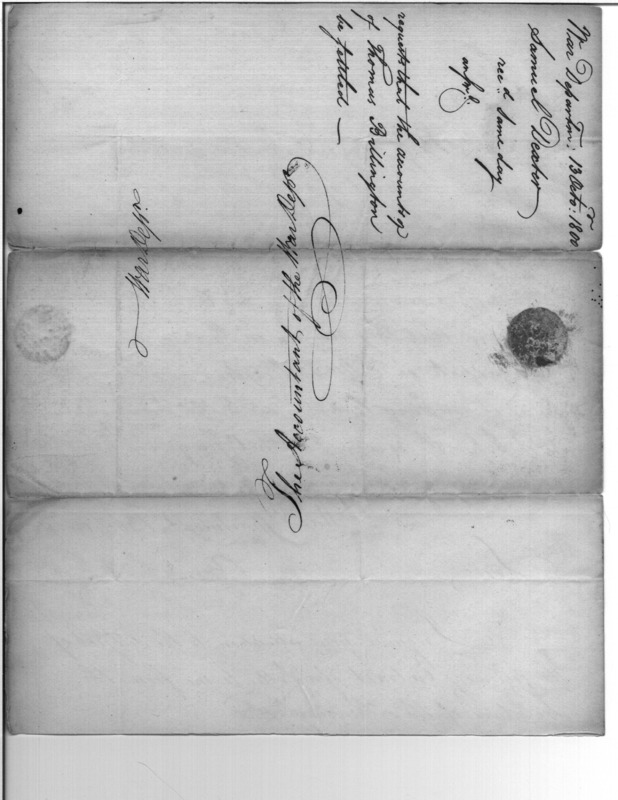 War Departm.t 13 Octo.r 1800
Samuel Dexter
rec.d same day
requests that the accounts of
of Thomas Billington
be settled —
The Accountant of the War Dep.t
War Dep.t